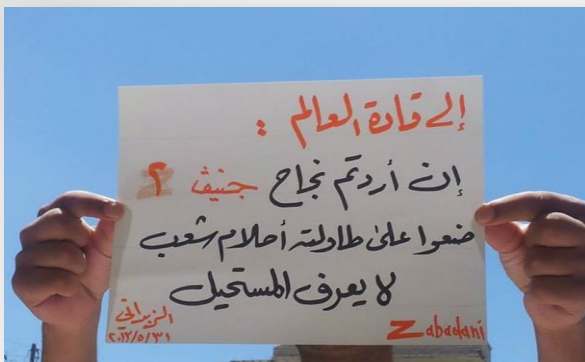 إلى قادة العالم :
إن أردتم نجاح جنيف ٢
ضعوا على طاولته أحلام شعب
لا يعرف المستحيل
الزبداني
٢٠١٣/٥/٣١
Zabadani